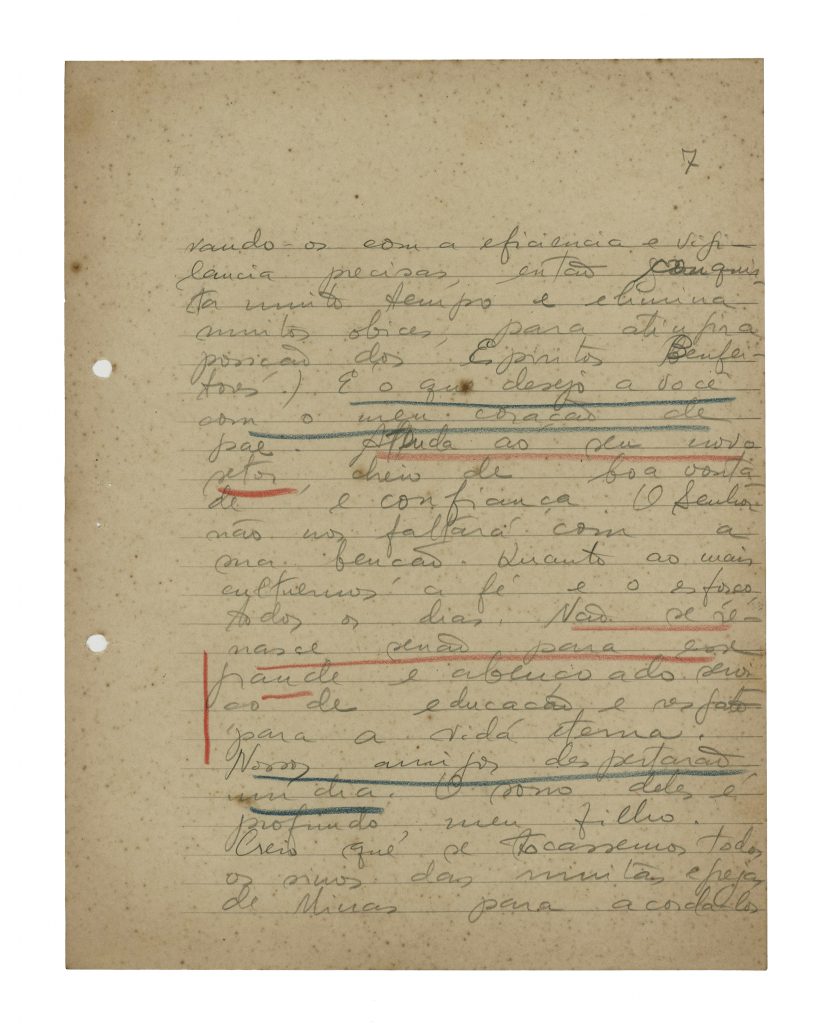 7
vando-os com a eficiencia e vigi-
lancia precisas, então conquis-
ta muito tempo e elimina
muitos obices, para atingir a
posição dos Espiritos Benfei-
tores.) É o que desejo a você
com o meu coração de
pae. Atenda ao seu novo
setor, cheio de boa vonta
de e confiança. O Senhor
não nos faltará com a
sua benção. Quanto ao mais
cultivemos a fé e o esforço
todos os dias. Não se re-
nasce senão para esse
grande e abençoado servi
ço de educação e resgate
para a vida eterna.
Nossos amigos despertarão
um dia. O sono deles é
profundo, meu filho.
Creio que, se tocassemos todos
os sinos das muitas egrejas
de Minas para acorda-los